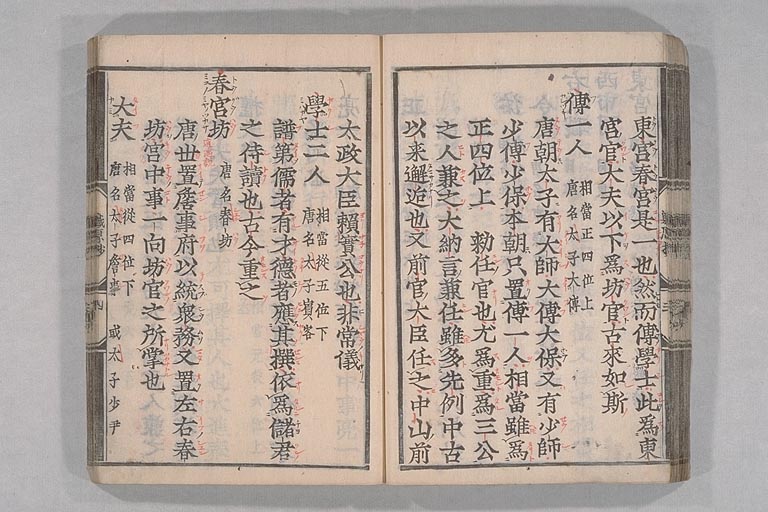 東宮春宮是一也然而傅學士此爲東
宮官大夫以下爲坊官古來如斯
傅一人 相當正四位上
唐名太子大傅
唐朝太子有大師大傅大保又有少師
少傅少保本朝只置傅一人相當雖爲
正四位上 勅任官也尤爲重爲三公
之人兼之大納言兼任雖多先例中古
以来邂逅也又前官大臣任之中山前
太政大臣賴實公也非常儀
學士二人 相當從五位下
唐名太子賓客
譜第儒者有才德者應其撰依爲儲君
之侍讀也古今重之
春宮坊 唐名春坊
唐世置詹事府以統衆務又置左右春
坊宮中事一向坊官之所掌也
大夫 相當從四位下
唐名太子詹事 或太子少尹